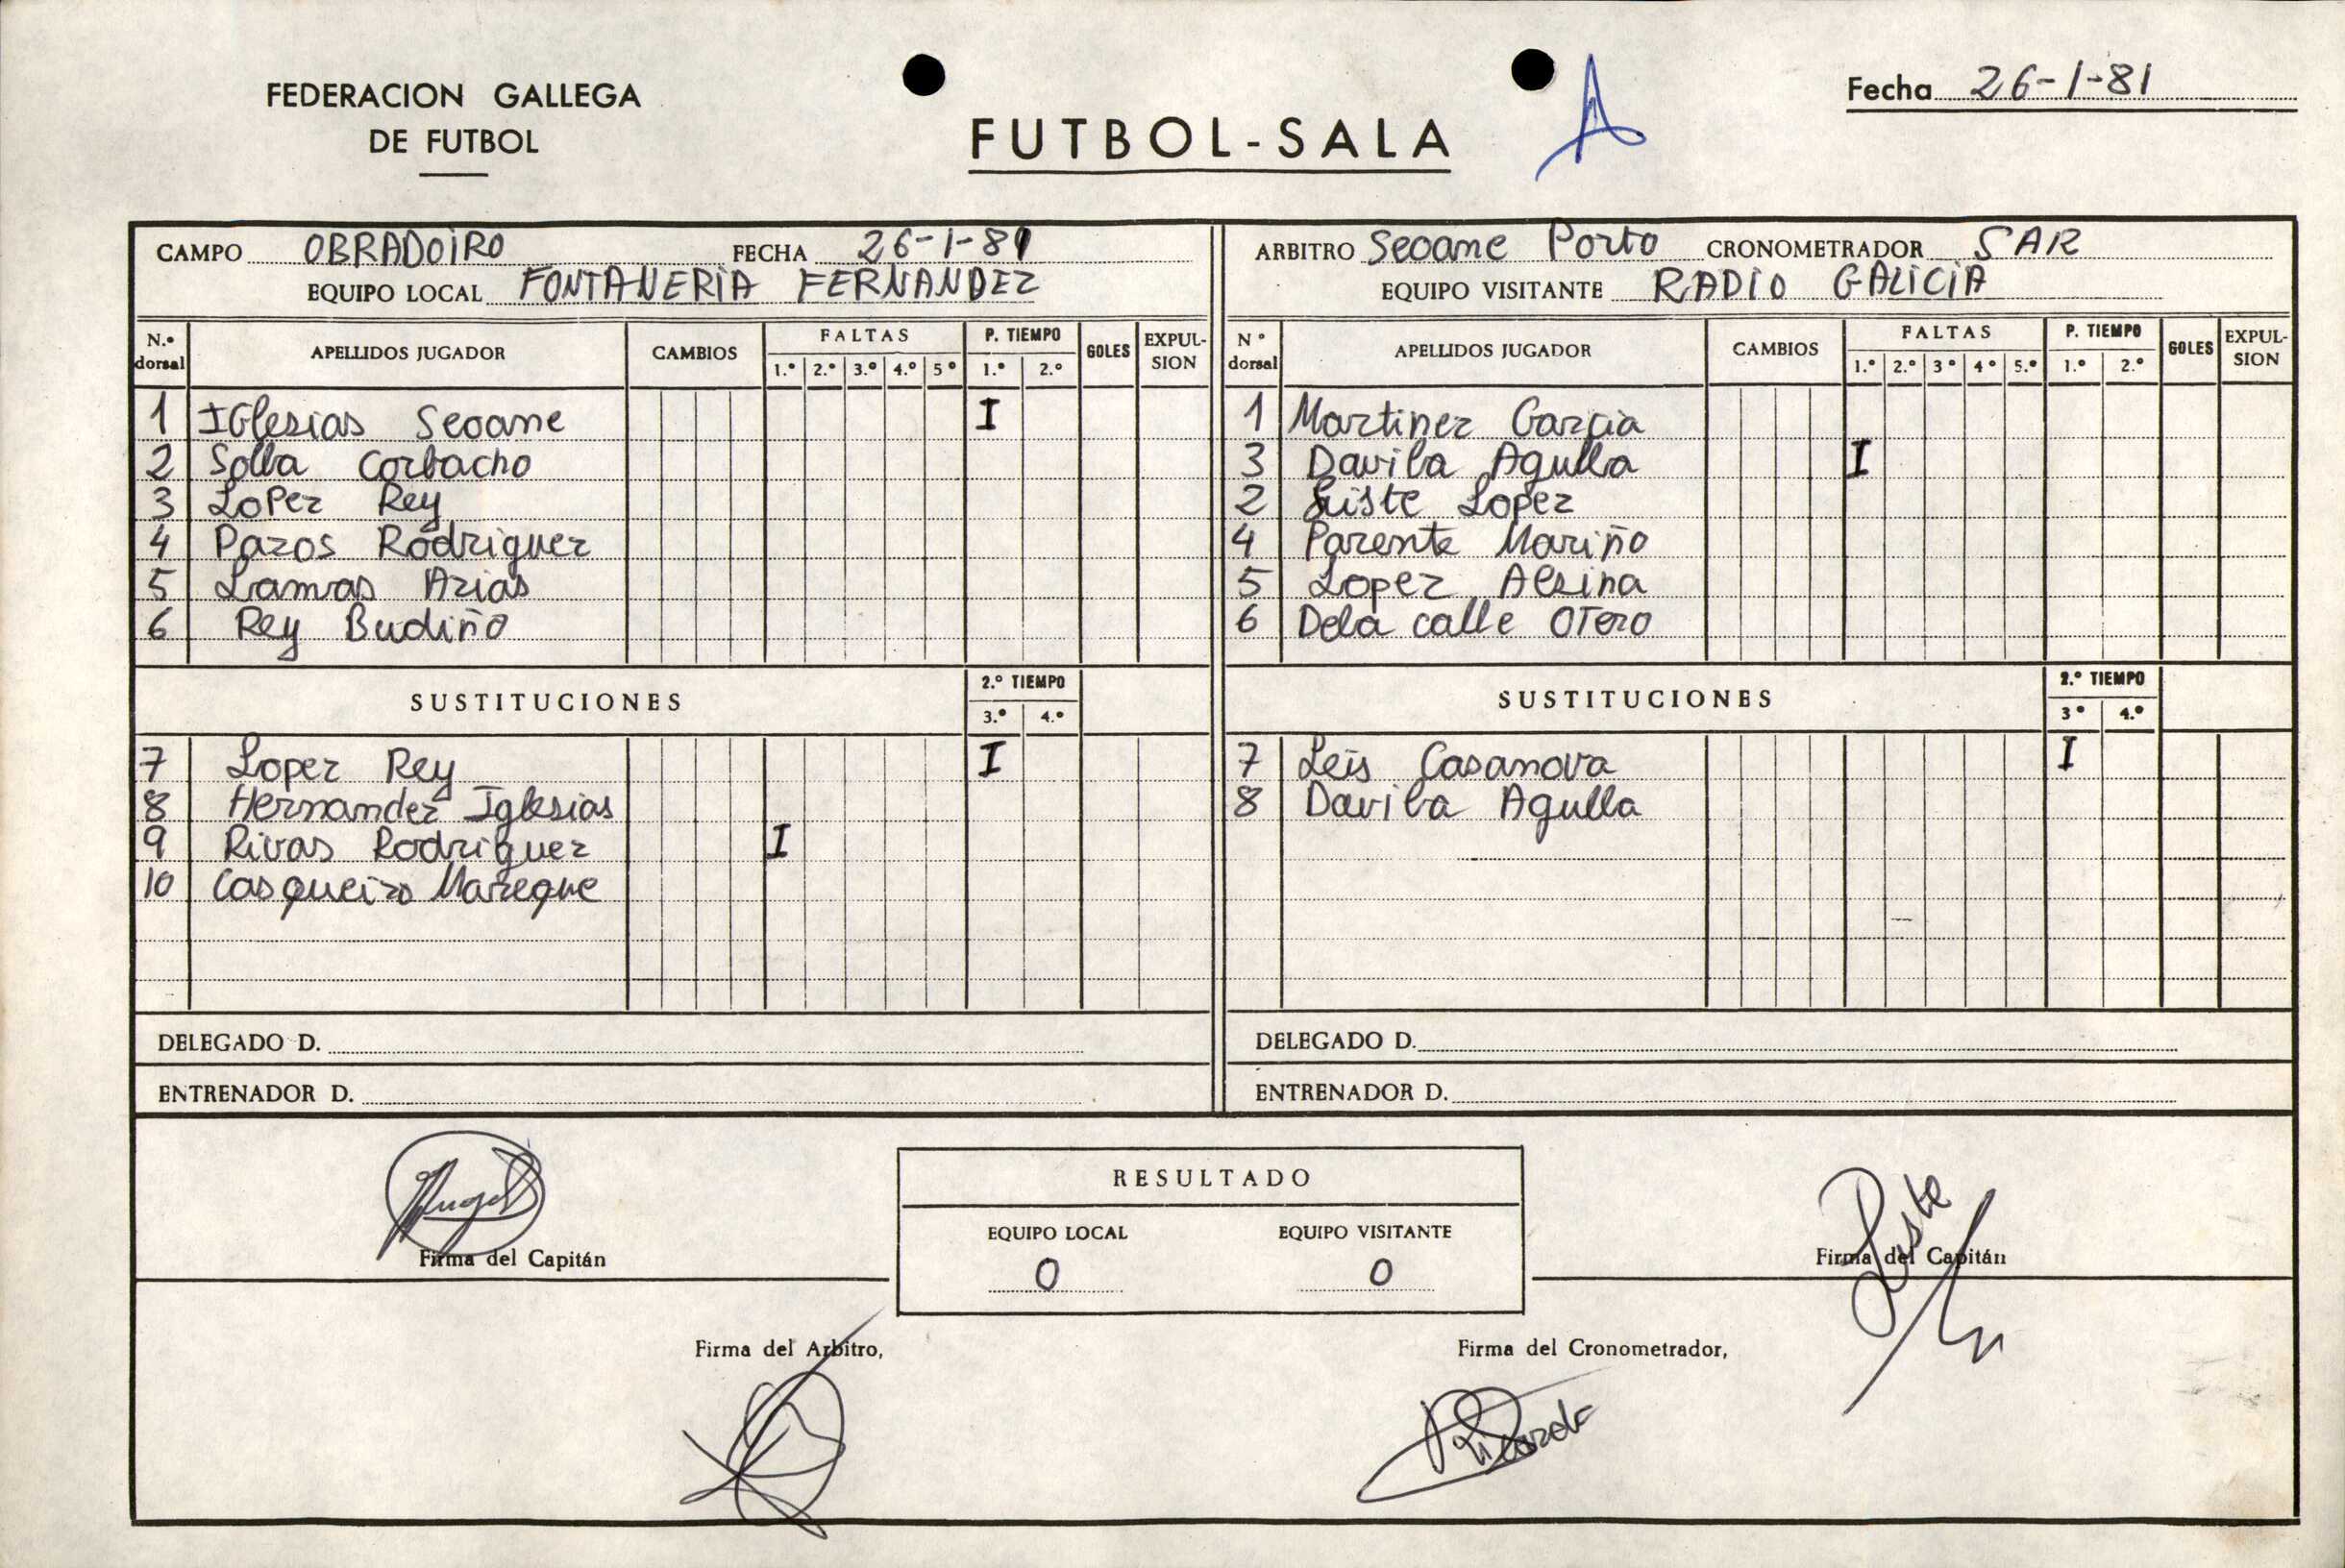 FEDERACION GALLEGA
DE FUTBOL
FUTBOL-SALA
A
Fecha 26-1-81
CAMPO OBRADOIRO FECHA 26-1-81
EQUIPO LOCAL FONTANERIA FERNANDEZ
N.º dorsal APELLIDOS JUGADOR CAMBIOS FALTAS 1.º 2.º 3.º 4.º 5º P. TIEMPO 1.º 2.º GOLES EXPUL-SION
1 IGlesias Seoane I
2 Solla Corbacho
3 Lopez Rey
4 Pazos Rodriguez
5 Lamas Arias
6 Rey Budiño
SUSTITUCIONES 2.º TIEMPO 3.º 4.º
7 Lopez Rey I
8 Hernandez Iglesias
9 Rivas Rodriguez I
10 Casqueiro Mareque
DELEGADO D.
ENTRENADOR D.
ARBITRO Seoane Porto CRONOMETRADOR SAR
EQUIPO VISITANTE RADIO GALICIA
Nº dorsal APELLIDOS JUGADOR CAMBIOS FALTAS 1.º 2.º 3º 4º 5.º P. TIEMPO 1.º 2.º GOLES EXPUL-SION
1 Martinez Garcia
3 Davila Agulla I
2 Liste Lopez
4 Parente Mariño
5 Lopez Alsina
6 Dela calle OTero
SUSTITUCIONES 2.º TIEMPO 3º 4.º
7 Leis Casanova I
8 Davila Agulla
DELEGADO D.
ENTRENADOR D.
Firma del Capitán
RESULTADO
EQUIPO LOCAL EQUIPO VISITANTE
0 0
Liste
Firma del Capitán
Firma del Arbitro,
Firma del Cronometrador,